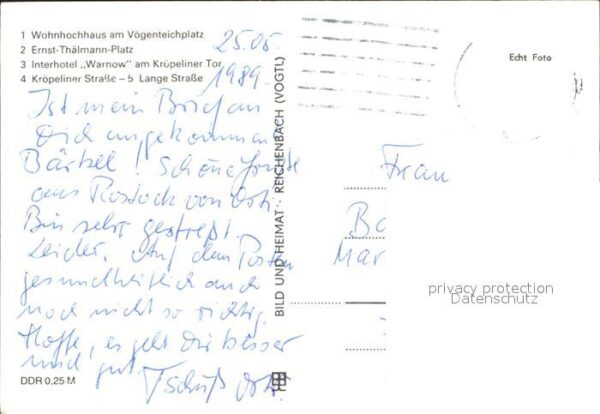 1 Wohnhochhaus am Vögenteichplatz
2 Ernst-Thälmann-Platz
3 Interhotel „Warnow" am Kröpeliner Tor
4 Kröpeliner Straße – 5 Lange Straße
25.05.
1989.
Ist mein Brief an
Dich angekommen
Bärbel! Schöne Grüße
aus Rostock von
Bin sehr gestreßt.
Leider. Auf dem Posten
gesundheitlich auch
noch nicht so richtig.
Hoffe, es geht Dir besser
und gut.
Tschüß
DDR 0,25 M
BILD UND HEIMAT REICHENBACH (VOGTL)
Echt Foto
Frau
Mar
privacy protection
Datenschutz